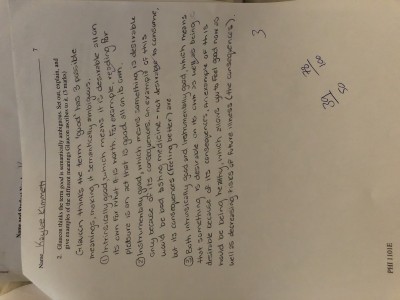 Name: Kaylee Kinnett
7
2. Glaucon thinks the term good is semantically ambiguous. Set out, explain, and
give examples of the different meanings Glaucon ascribes to it. (3 marks)
Glaucon thinks the term 'good' has 3 possible
meanings, making it semantically ambiguous.
① Intrinsically good, which means it is desirable all on
its own for what it is worth. For example, reading for
pleasure is an act that is good all on its own.
② Instrumentally good, which means something is desirable
only because of its consequences. An example of this
would be bad tasting medicine - not desirable to consume,
but its consequences (feeling better) are.
③ Both intrinsically good and instrumentally good, which means
that something is desirable on its own as well as being
desirable because of its consequences. An example of this
would be being healthy, which allows you to feel good now as
well as decreasing risks of future illness (the consequences).
3
PHI 1101E